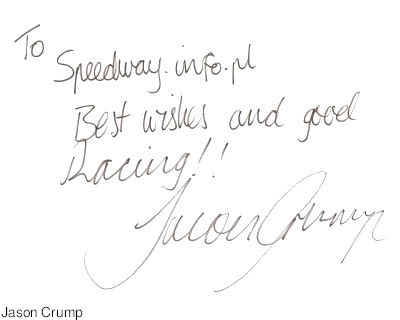 To
Speedway.info.pl
Best wishes and good
Racing!!
Jason Crump
Jason Crump